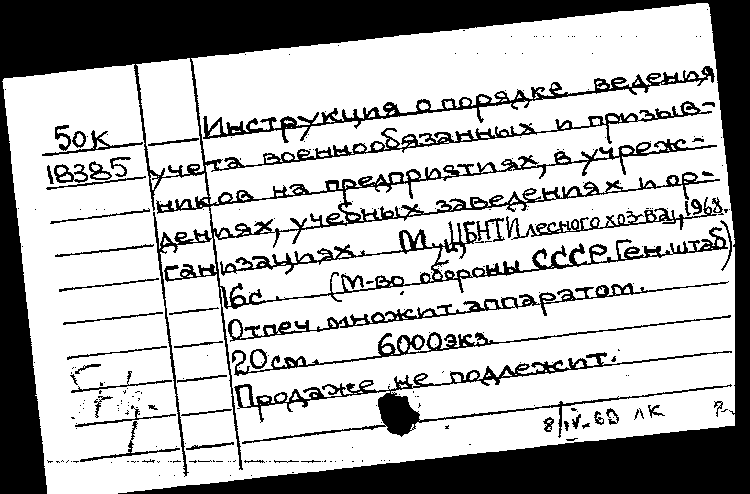 50К
18385
Инструкция о порядке ведения
учета военнообязанных и призыв-
ников на предприятиях, в учреж-
дениях, учебных заведениях и ор-
ганизациях. М., ЦБНТИ лесного хоз-ва, 1968.
16с. (М-во обороны СССР. Ген. штаб)
Отпеч. множит. аппаратом.
20см. 6000экз.
Продаже не подлежит.
8/IV-69 ЛК